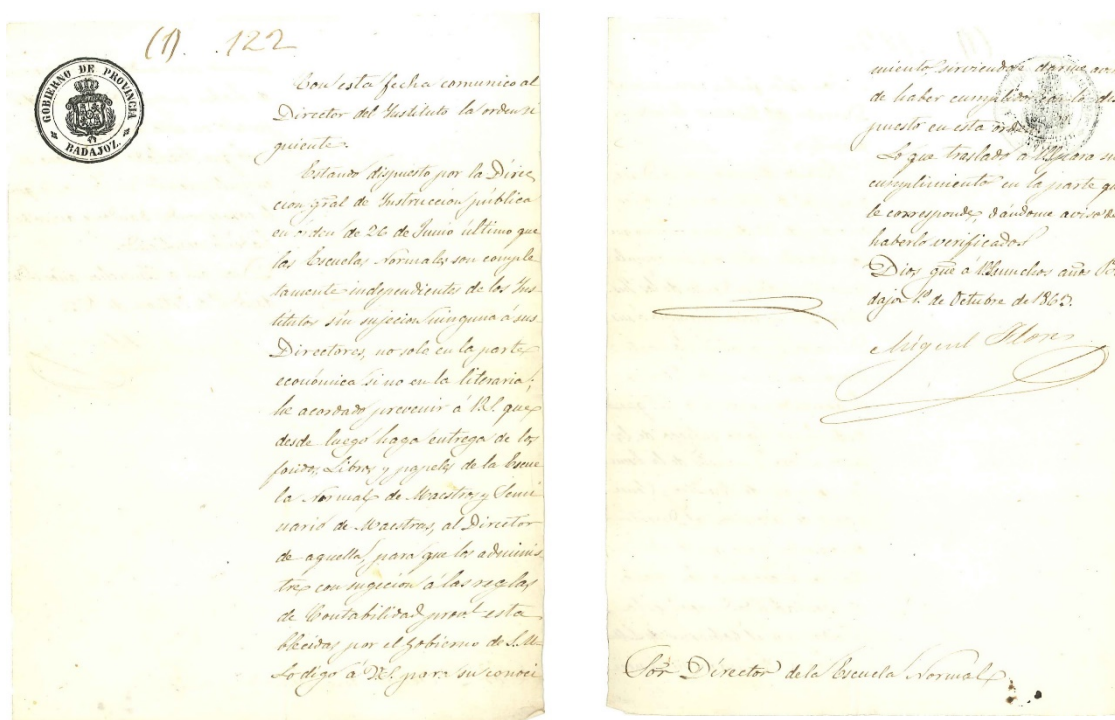 (1). 122
GOBIERNO DE PROVINCIA
BADAJOZ.
Con esta fecha comunico al
Director del Instituto la orden si
guiente.
Estando dispuesto por la Direc
cion gral de Instruccion pública
en orden de 26 de Junio último que
las Escuelas Normales son comple
tamente independientes de los Ins
titutos sin sujecion ninguna á sus
Directores, no solo en la parte
económica si no en la literaria;
he acordado prevenir á V.S. que
desde luego haga entrega de los
fondos, Libros y papeles de la Escue
la Normal de Maestros y Semi
nario de Maestras, al Director
de aquella, para que los adminis
tre con sugecion á las reglas
de Contabilidad prov.l esta
blecidas por el Gobierno de S.M.
Lo digo á V.S. para su conoci
miento sirviendose darme avi
de haber cumplido con lo dis
puesto en esta orden
Lo que traslado a V. para su
cumplimiento en la parte que
le corresponde, dándome aviso de
haberlo verificado.
Dios gue á V. muchos años Ba
dajoz 1º de Octubre de 1865.
Miguel Flores
Sor. Director de la Escuela Normal